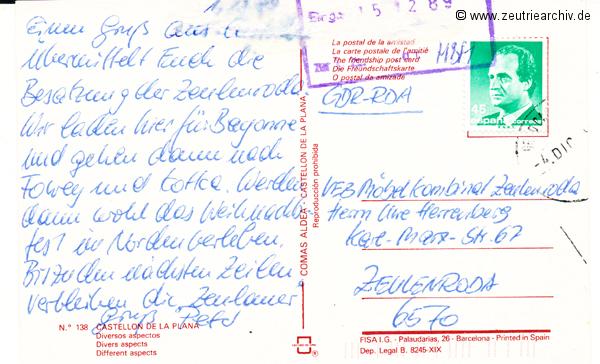 © www.zeutriearchiv.de
Einen Gruß aus
übermittelt Euch die
Besatzung der Zeulenroda
Wir laden hier für Bayonne
und gehen dann nach
Fowey und Kotka. Werden
dann wohl das Weihnachts-
fest im Norden verleben.
Bis zu den nächsten Zeilen
verbleiben die „Zeulaner"
Gruß
N.º 138 CASTELLON DE LA PLANA
Diversos aspectos
Divers aspects
Different aspects
COMAS ALDEA - CASTELLON DE LA PLANA
Reproducción prohibida
Eing. 15 12 89
La postal de la amistad
La carte postale de l'amitié
The friendship post card
Die Freundschaftskarte
O postal da amizade
GDR-RDA
45
españa correos
4. DIC
VEB Möbelkombinat Zeulenroda
Herrn Uwe Herrenberg
Karl-Marx-Str. 67
ZEULENRODA
6570
FISA I.G. - Palaudarias, 26 - Barcelona - Printed in Spain
Dep. Legal B. 8245-XIX